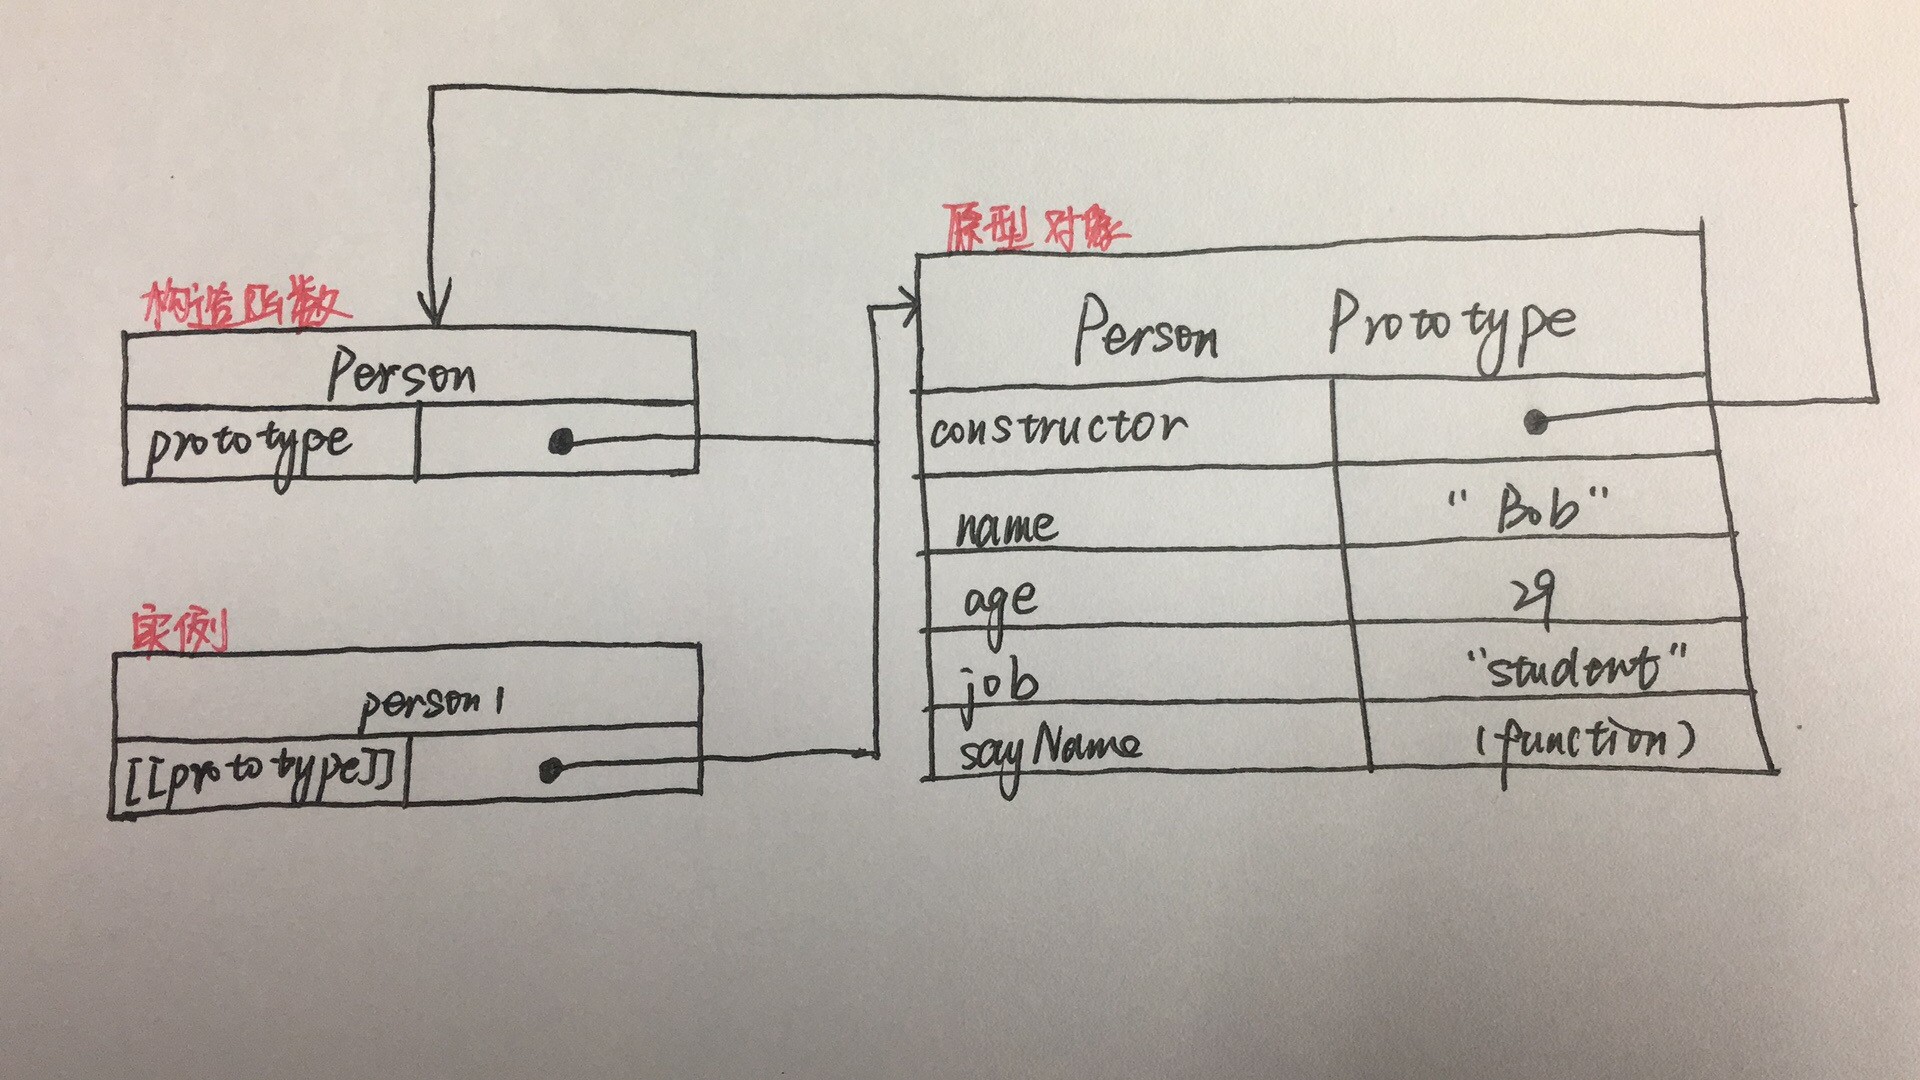 构造函数
Person
prototype
实例
person1
[[prototype]]
原型对象
Person Prototype
constructor
name "Bob"
age 29
job "student"
sayName (function)